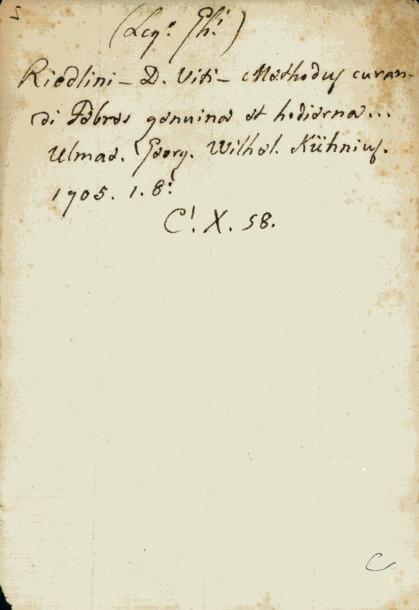 5
(Leq.e Ph.i)
Riedlini - D. Viti - Methodus curan-
di Febres genuina et hodierna...
Ulmae. Georg. Wilhel. Kühnius.
1705. 1. 8.º
C! X. 58.
C